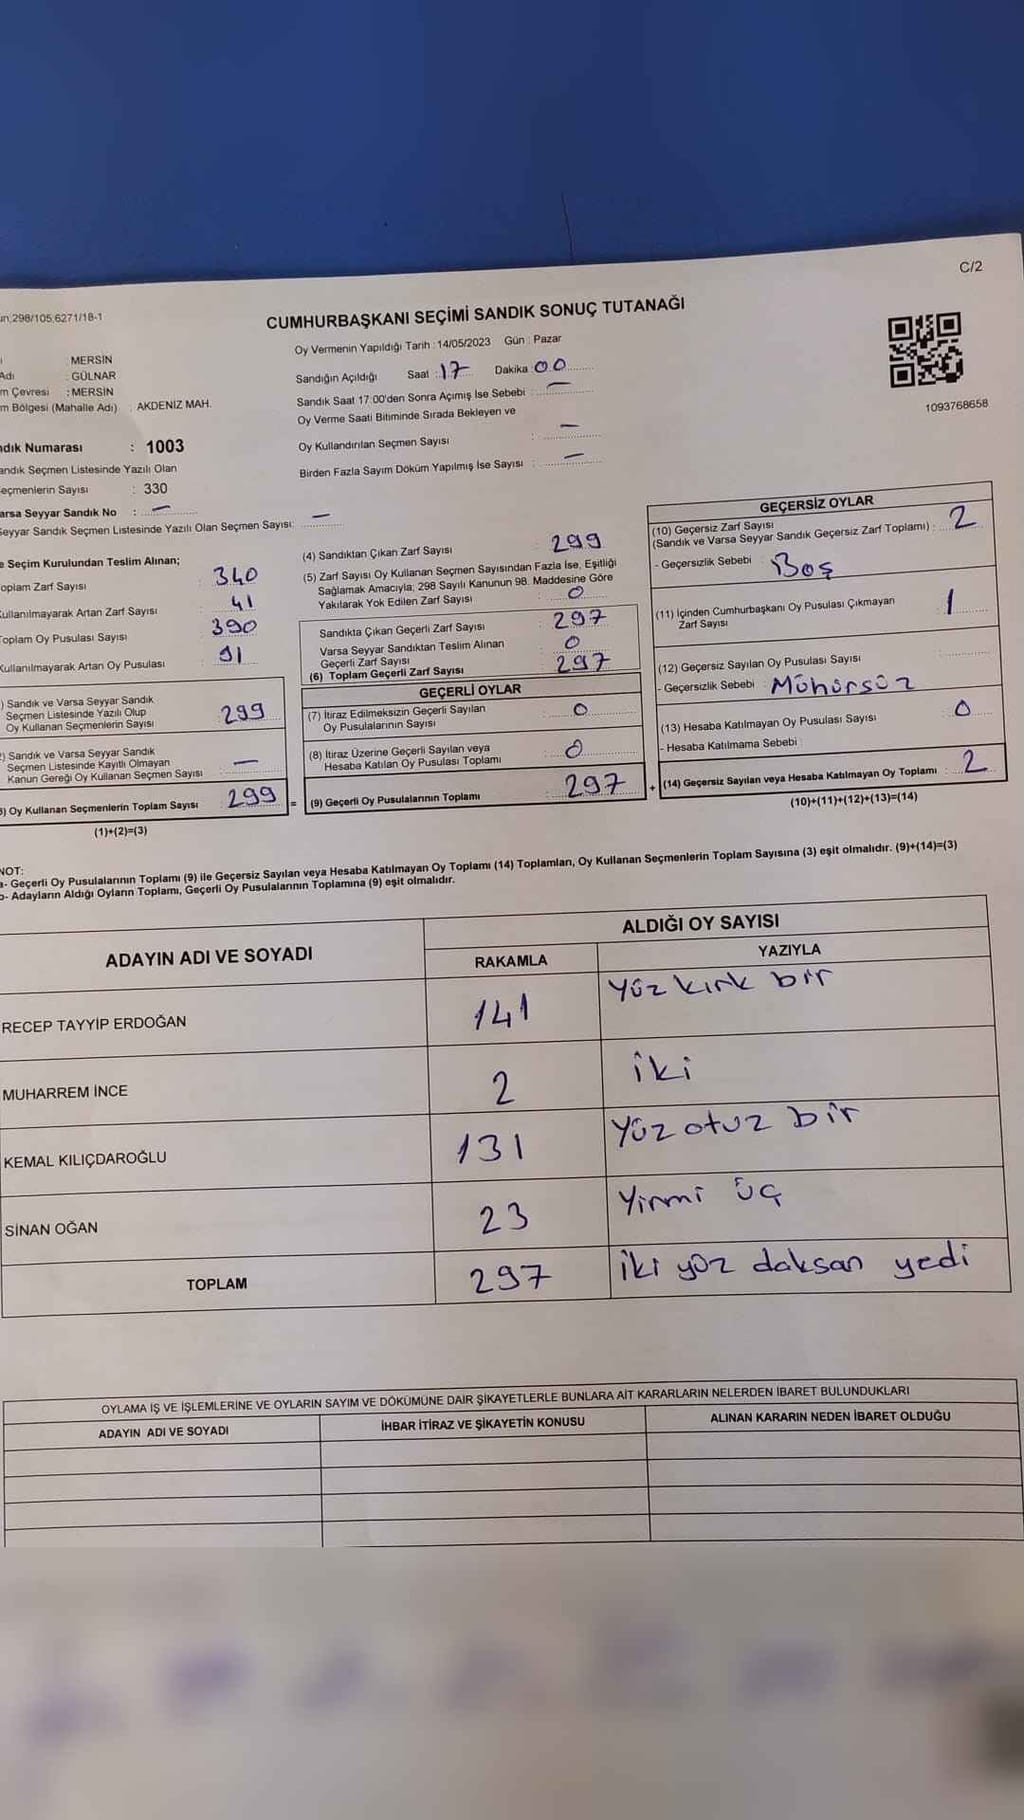 C/2
298/105;6271/18-1
CUMHURBAŞKANI SEÇİMİ SANDIK SONUÇ TUTANAĞI
: MERSİN
Adı : GÜLNAR
Çevresi : MERSİN
Bölgesi (Mahalle Adı) : AKDENİZ MAH.
Numarası : 1003
Seçmen Listesinde Yazılı Olan
Sayısı : 330
Seyyar Sandık No : —
Seyyar Sandık Seçmen Listesinde Yazılı Olan Seçmen Sayısı: —
Oy Vermenin Yapıldığı Tarih : 14/05/2023 Gün : Pazar
Sandığın Açıldığı Saat : 17 Dakika 00
Sandık Saat 17:00'den Sonra Açımış İse Sebebi : —
Oy Verme Saati Bitiminde Sırada Bekleyen ve
Oy Kullandırılan Seçmen Sayısı : —
Birden Fazla Sayım Döküm Yapılmış İse Sayısı : —
1093768658
Seçim Kurulundan Teslim Alınan;
Zarf Sayısı 340
Artan Zarf Sayısı 41
Oy Pusulası Sayısı 390
Artan Oy Pusulası 91
Sandık ve Varsa Seyyar Sandık
Seçmen Listesinde Yazılı Olup
Oy Kullanan Seçmenlerin Sayısı 299
Sandık ve Varsa Seyyar Sandık
Seçmen Listesinde Kayıtlı Olmayan
Kanun Gereği Oy Kullanan Seçmen Sayısı —
Oy Kullanan Seçmenlerin Toplam Sayısı 299 =
(1)+(2)=(3)
(4) Sandıktan Çıkan Zarf Sayısı : 299
(5) Zarf Sayısı Oy Kullanan Seçmen Sayısından Fazla İse, Eşitliği
Sağlamak Amacıyla; 298 Sayılı Kanunun 98. Maddesine Göre
Yakılarak Yok Edilen Zarf Sayısı : 0
Sandıkta Çıkan Geçerli Zarf Sayısı : 297
Varsa Seyyar Sandıktan Teslim Alınan
Geçerli Zarf Sayısı : 0
(6) Toplam Geçerli Zarf Sayısı : 297
GEÇERLİ OYLAR
(7) İtiraz Edilmeksizin Geçerli Sayılan
Oy Pusulalarının Sayısı : 0
(8) İtiraz Üzerine Geçerli Sayılan veya
Hesaba Katılan Oy Pusulası Toplamı : 0
(9) Geçerli Oy Pusulalarının Toplamı : 297 +
GEÇERSİZ OYLAR
(10) Geçersiz Zarf Sayısı
(Sandık ve Varsa Seyyar Sandık Geçersiz Zarf Toplamı) : 2
- Geçersizlik Sebebi : Boş
(11) İçinden Cumhurbaşkanı Oy Pusulası Çıkmayan
Zarf Sayısı : 1
(12) Geçersiz Sayılan Oy Pusulası Sayısı :
- Geçersizlik Sebebi : Mühürsüz
(13) Hesaba Katılmayan Oy Pusulası Sayısı : 0
- Hesaba Katılmama Sebebi :
(14) Geçersiz Sayılan veya Hesaba Katılmayan Oy Toplamı : 2
(10)+(11)+(12)+(13)=(14)
NOT:
a- Geçerli Oy Pusulalarının Toplamı (9) ile Geçersiz Sayılan veya Hesaba Katılmayan Oy Toplamı (14) Toplamları, Oy Kullanan Seçmenlerin Toplam Sayısına (3) eşit olmalıdır. (9)+(14)=(3)
b- Adayların Aldığı Oyların Toplamı, Geçerli Oy Pusulalarının Toplamına (9) eşit olmalıdır.
ADAYIN ADI VE SOYADI ALDIĞI OY SAYISI
RAKAMLA YAZIYLA
RECEP TAYYİP ERDOĞAN 141 Yüz kırk bir
MUHARREM İNCE 2 iki
KEMAL KILIÇDAROĞLU 131 Yüz otuz bir
SİNAN OĞAN 23 Yirmi üç
TOPLAM 297 iki yüz daksan yedi
OYLAMA İŞ VE İŞLEMLERİNE VE OYLARIN SAYIM VE DÖKÜMÜNE DAİR ŞİKAYETLERLE BUNLARA AİT KARARLARIN NELERDEN İBARET BULUNDUKLARI
ADAYIN ADI VE SOYADI İHBAR İTİRAZ VE ŞİKAYETİN KONUSU ALINAN KARARIN NEDEN İBARET OLDUĞU